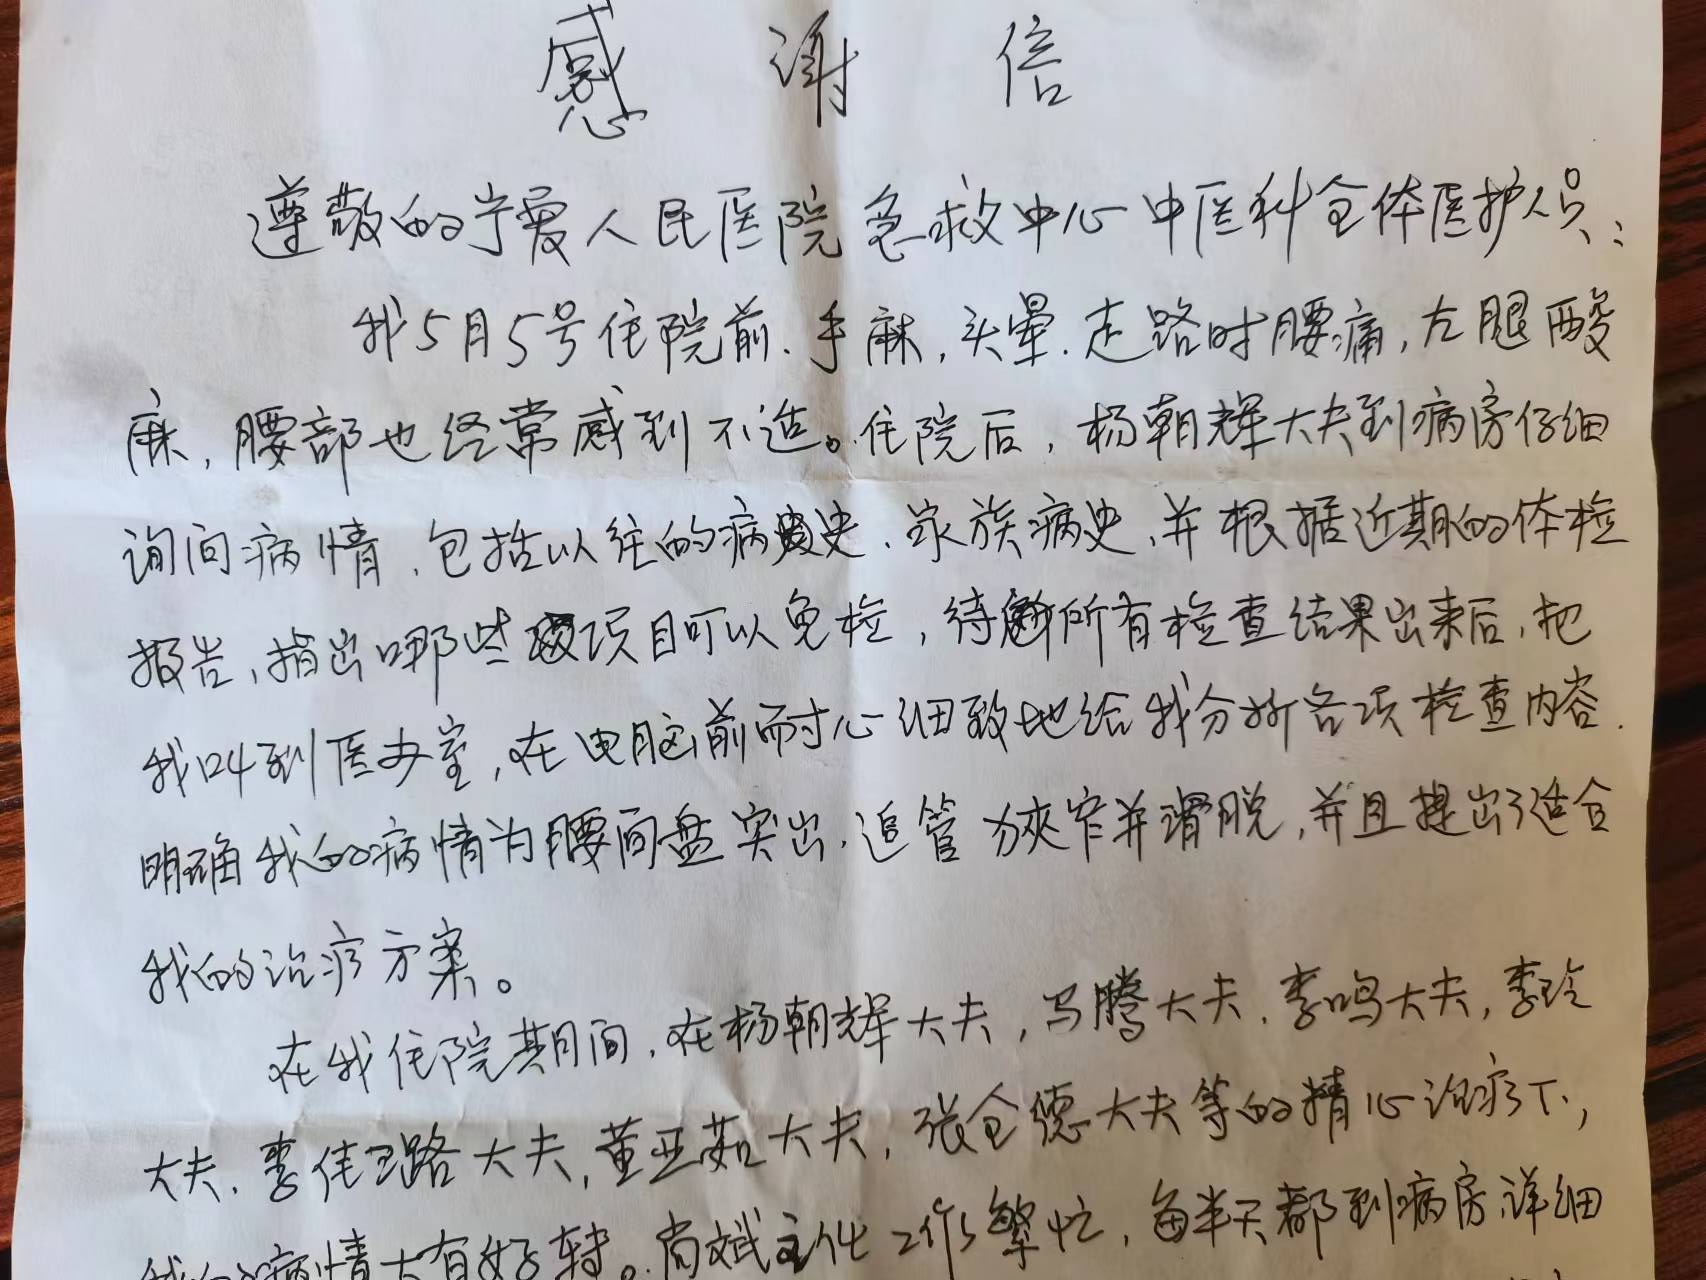 感谢信
尊敬的宁夏人民医院急救中心中医科全体医护人员:
我5月5号住院前、手麻,头晕、走路时腰痛,左腿酸
麻,腰部也经常感到不适。住院后,杨朝辉大夫到病房仔细
询问病情、包括以往的病史、家族病史、并根据近期的体检
报告、指出哪些项目可以免检,待所有检查结果出来后,把
我叫到医办室,在电脑前耐心细致地给我分析各项检查内容.
明确我的病情为腰间盘突出、追管狭窄并滑脱,并且提出了适合
我的治疗方案。
在我住院期间、在杨朝辉大夫,马腾大夫、李鸣大夫,李玲
大夫、李佳璐大夫,董亚茹大夫,张全德大夫等的精心治疗下,
我的病情大有好转。尚斌主任工作繁忙,每半天都到病房详细